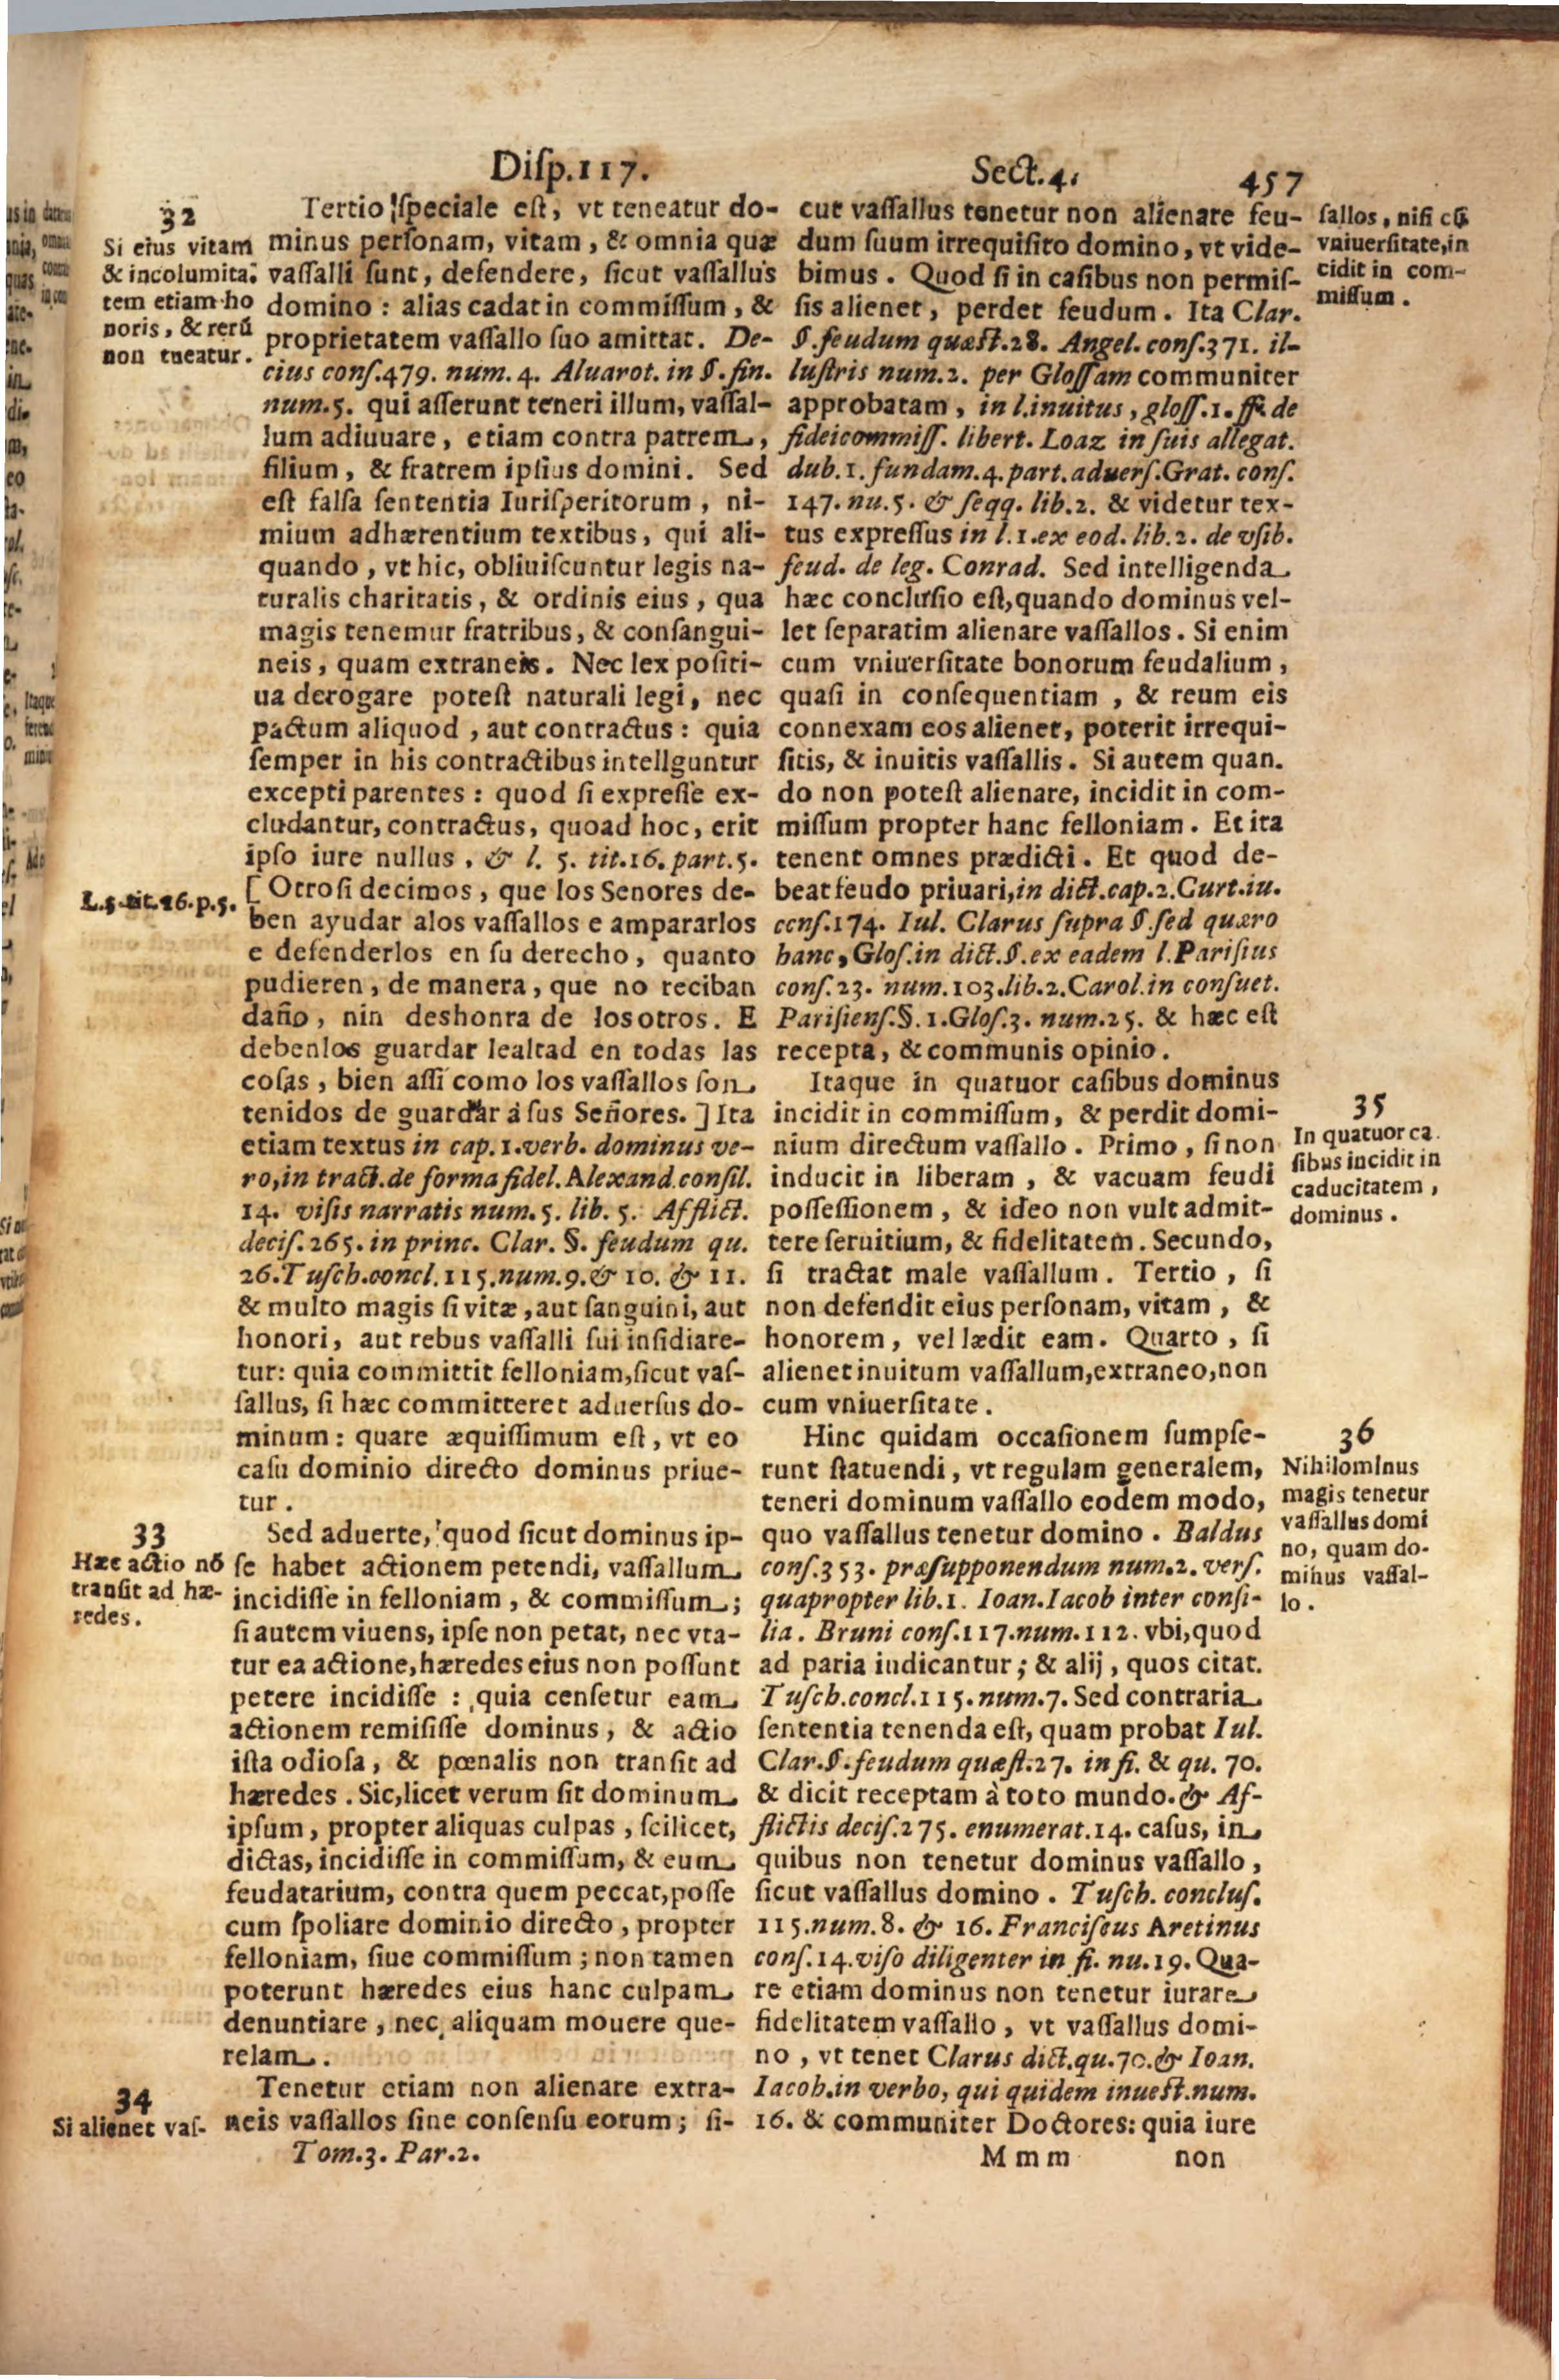 Disp.117.
Sect.4.
457
32
Si eius vitam
& incolumita-
tem etiam ho
noris, & rerũ
non tueatur.
Tertio speciale est, vt teneatur do-
minus personam, vitam, & omnia quæ
vassalli sunt, defendere, sicut vassallus
domino: alias cadat in commissum, &
proprietatem vassallo suo amittat. De-
cius cons.479. num.4. Aluarot. in §.fin.
num.5. qui asserunt teneri illum, vassal-
lum adiuuare, etiam contra patrem,
filium, & fratrem ipsius domini. Sed
est falsa sententia Iurisperitorum, ni-
mium adhærentium textibus, qui ali-
quando, vt hic, obliuiscuntur legis na-
turalis charitatis, & ordinis eius, qua
magis tenemur fratribus, & consangui-
neis, quam extraneis. Nec lex positi-
ua derogare potest naturali legi, nec
pactum aliquod, aut contractus: quia
semper in his contractibus intellguntur
excepti parentes: quod si expresse ex-
cludantur, contractus, quoad hoc, erit
ipso iure nullus, & l. 5. tit.16. part.5.
L.5.tit.26.p.5.
[Otrosi decimos, que los Senores de-
ben ayudar alos vassallos e ampararlos
e defenderlos en su derecho, quanto
pudieren, de manera, que no reciban
daño, nin deshonra de losotros. E
debenlos guardar lealtad en todas las
cosas, bien assi como los vassallos son
tenidos de guardar á sus Señores.] Ita
etiam textus in cap.1.verb. dominus ve-
ro,in tract.de forma fidel.Alexand.consil.
14. visis narratis num.5. lib.5. Afflict.
decis.265. in princ. Clar. §. feudum qu.
26.Tusch.concl.115.num.9.& 10. & 11.
& multo magis si vitæ, aut sanguini, aut
honori, aut rebus vassalli sui insidiare-
tur: quia committit felloniam, sicut vas-
sallus, si hæc committeret aduersus do-
minum: quare æquissimum est, vt eo
casu dominio directo dominus priue-
tur.
33
Hæc actio nõ
transit ad hæ-
redes.
Sed aduerte, quod sicut dominus ip-
se habet actionem petendi, vassallum
incidisse in felloniam, & commissum;
si autem viuens, ipse non petat, nec vta-
tur ea actione, hæredes eius non possunt
petere incidisse: quia censetur eam
actionem remisisse dominus, & actio
ista odiosa, & pœnalis non transit ad
hæredes. Sic, licet verum sit dominum
ipsum, propter aliquas culpas, scilicet,
dictas, incidisse in commissum, & eum
feudatarium, contra quem peccat, posse
cum spoliare dominio directo, propter
felloniam, siue commissum; non tamen
poterunt hæredes eius hanc culpam
denuntiare, nec aliquam mouere que-
relam.
34
Si alienet vas-
Tenetur etiam non alienare extra-
neis vassallos sine consensu eorum; si-
Tom.3. Par.2.
cut vassallus tenetur non alienare feu-
dum suum irrequisito domino, vt vide-
bimus. Quod si in casibus non permis-
sis alienet, perdet feudum. Ita Clar.
§.feudum quæst.28. Angel. cons.371. il-
lustris num.2. per Glossam communiter
approbatam, in l.inuitus, gloss.1.ff.de
fideicommiss. libert. Loaz in suis allegat.
dub.1.fundam.4.part.aduers.Grat. cons.
147. nu.5. & seqq. lib.2. & videtur tex-
tus expressus in l.1.ex eod. lib.2. de vsib.
feud. de leg. Conrad. Sed intelligenda
hæc conclusio est, quando dominus vel-
let separatim alienare vassallos. Si enim
cum vniuersitate bonorum feudalium,
quasi in consequentiam, & reum eis
connexam eos alienet, poterit irrequi-
sitis, & inuitis vassallis. Si autem quan.
do non potest alienare, incidit in com-
missum propter hanc felloniam. Et ita
tenent omnes prædicti. Et quod de-
beat feudo priuari, in dict.cap.2.Curt.iu.
cons.174. Iul. Clarus supra §.sed quæro
hanc, Glos.in dict.§.ex eadem l.Parisius
cons.23. num.103.lib.2.Carol.in consuet.
Parisiens.§.1.Glos.3. num.25. & hæc est
recepta, & communis opinio.
sallos, nisi cũ
vniuersitate, in
cidit in com-
missum.
Itaque in quatuor casibus dominus
incidit in commissum, & perdit domi-
nium directum vassallo. Primo, si non
inducit in liberam, & vacuam feudi
possessionem, & ideo non vult admit-
tere seruitium, & fidelitatem. Secundo,
si tractat male vassallum. Tertio, si
non defendit eius personam, vitam, &
honorem, vel lædit eam. Quarto, si
alienet inuitum vassallum, extraneo, non
cum vniuersitate.
35
In quatuor ca
sibus incidit in
caducitatem,
dominus.
Hinc quidam occasionem sumpse-
runt statuendi, vt regulam generalem,
teneri dominum vassallo eodem modo,
quo vassallus tenetur domino. Baldus
cons.353. præsupponendum num.2. vers.
quapropter lib.1. Ioan.Iacob inter consi-
lia. Bruni cons.117.num.112. vbi, quod
ad paria iudicantur; & alij, quos citat.
Tusch.concl.115.num.7. Sed contraria
sententia tenenda est, quam probat Iul.
Clar.§.feudum quæst.27. in fi. & qu. 70.
& dicit receptam à toto mundo. & Af-
flictis decis.275. enumerat.14. casus, in
quibus non tenetur dominus vassallo,
sicut vassallus domino. Tusch. conclus.
115.num.8. & 16. Franciscus Aretinus
cons.14.viso diligenter in fi. nu.19. Qua-
re etiam dominus non tenetur iurare
fidelitatem vassallo, vt vassallus domi-
no, vt tenet Clarus dict.qu.70.& Ioan.
Iacob.in verbo, qui quidem inuest.num.
16. & communiter Doctores: quia iure
36
Nihilominus
magis tenetur
vassallus domi
no, quam do-
minus vassal-
lo.
Mmm
non